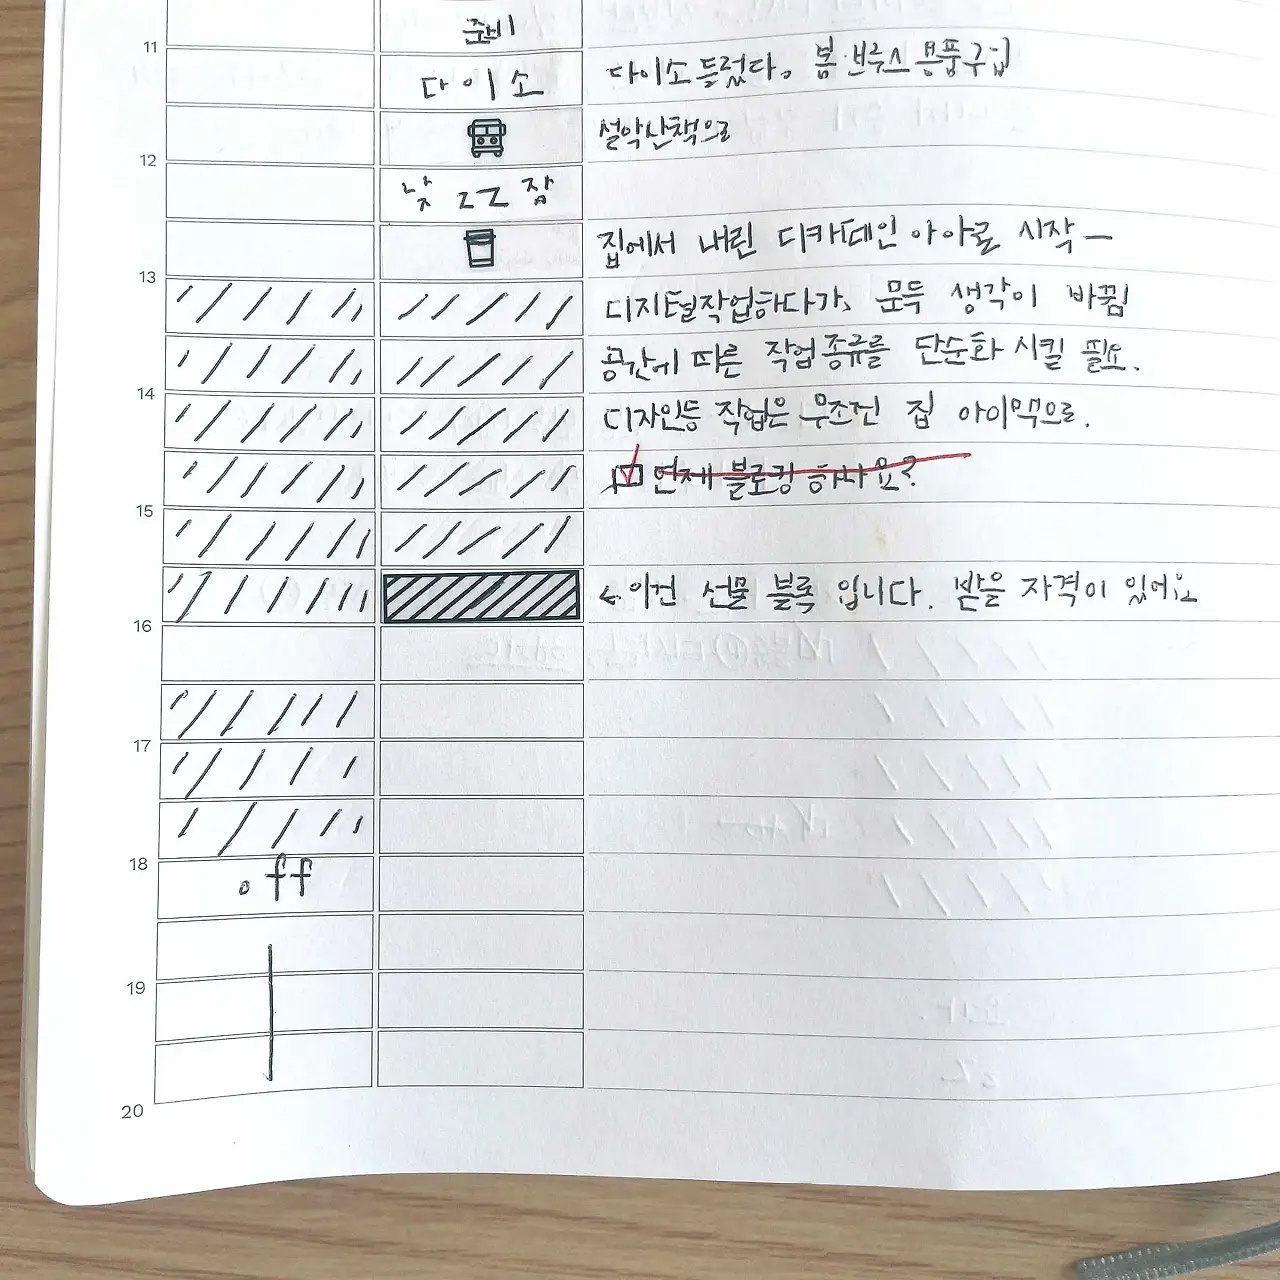 준비
11
다이소 다이소 들렀다. 봄·브루스 용품구입
설악산책으로
12
낮 zz 잠
집에서 내린 디카페인 아아로 시작 —
13
디지털작업하다가, 모두 생각이 바뀜
공간에 따른 작업 종류를 단순화 시킬 필요.
14
디자인등 작업은 무조건 집 아이맥으로.
언제 블로킹 하나요?
15
← 이건 선물 블록 입니다. 받을 자격이 있어요
16
17
18
off
19
20